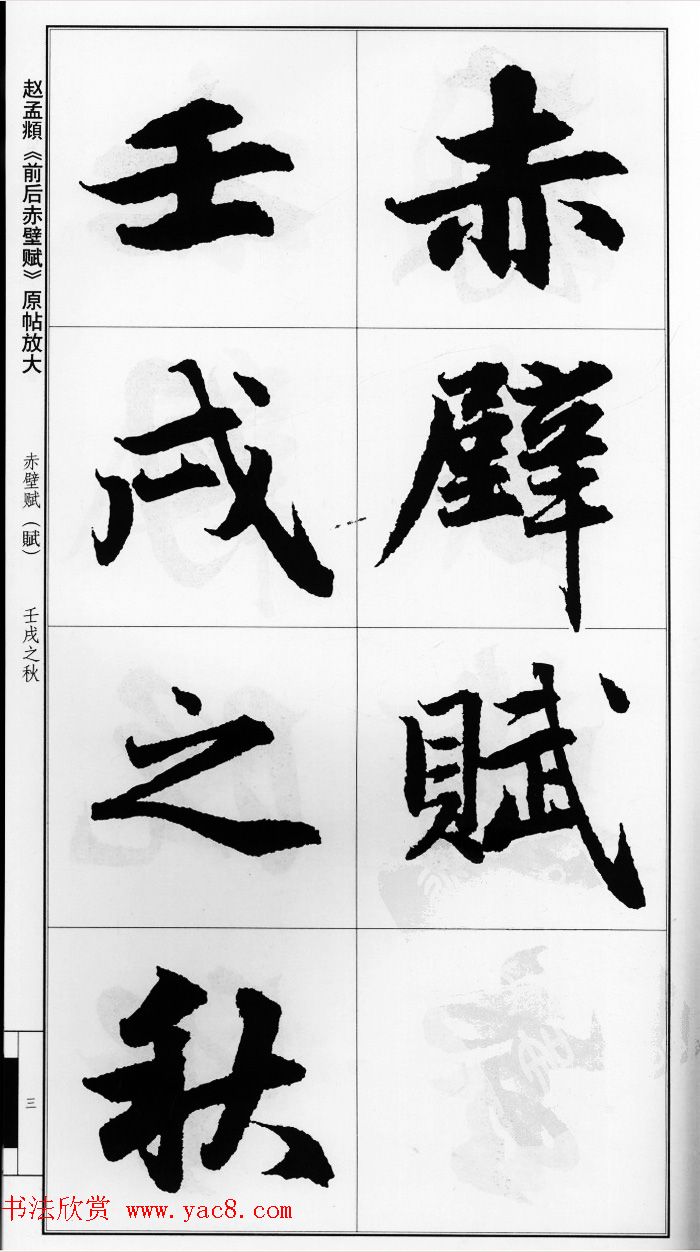 赤壁賦
壬戌之秋
赵孟頫《前后赤壁赋》原帖放大
赤壁赋(賦) 壬戌之秋
三
书法欣赏 www.yac8.com